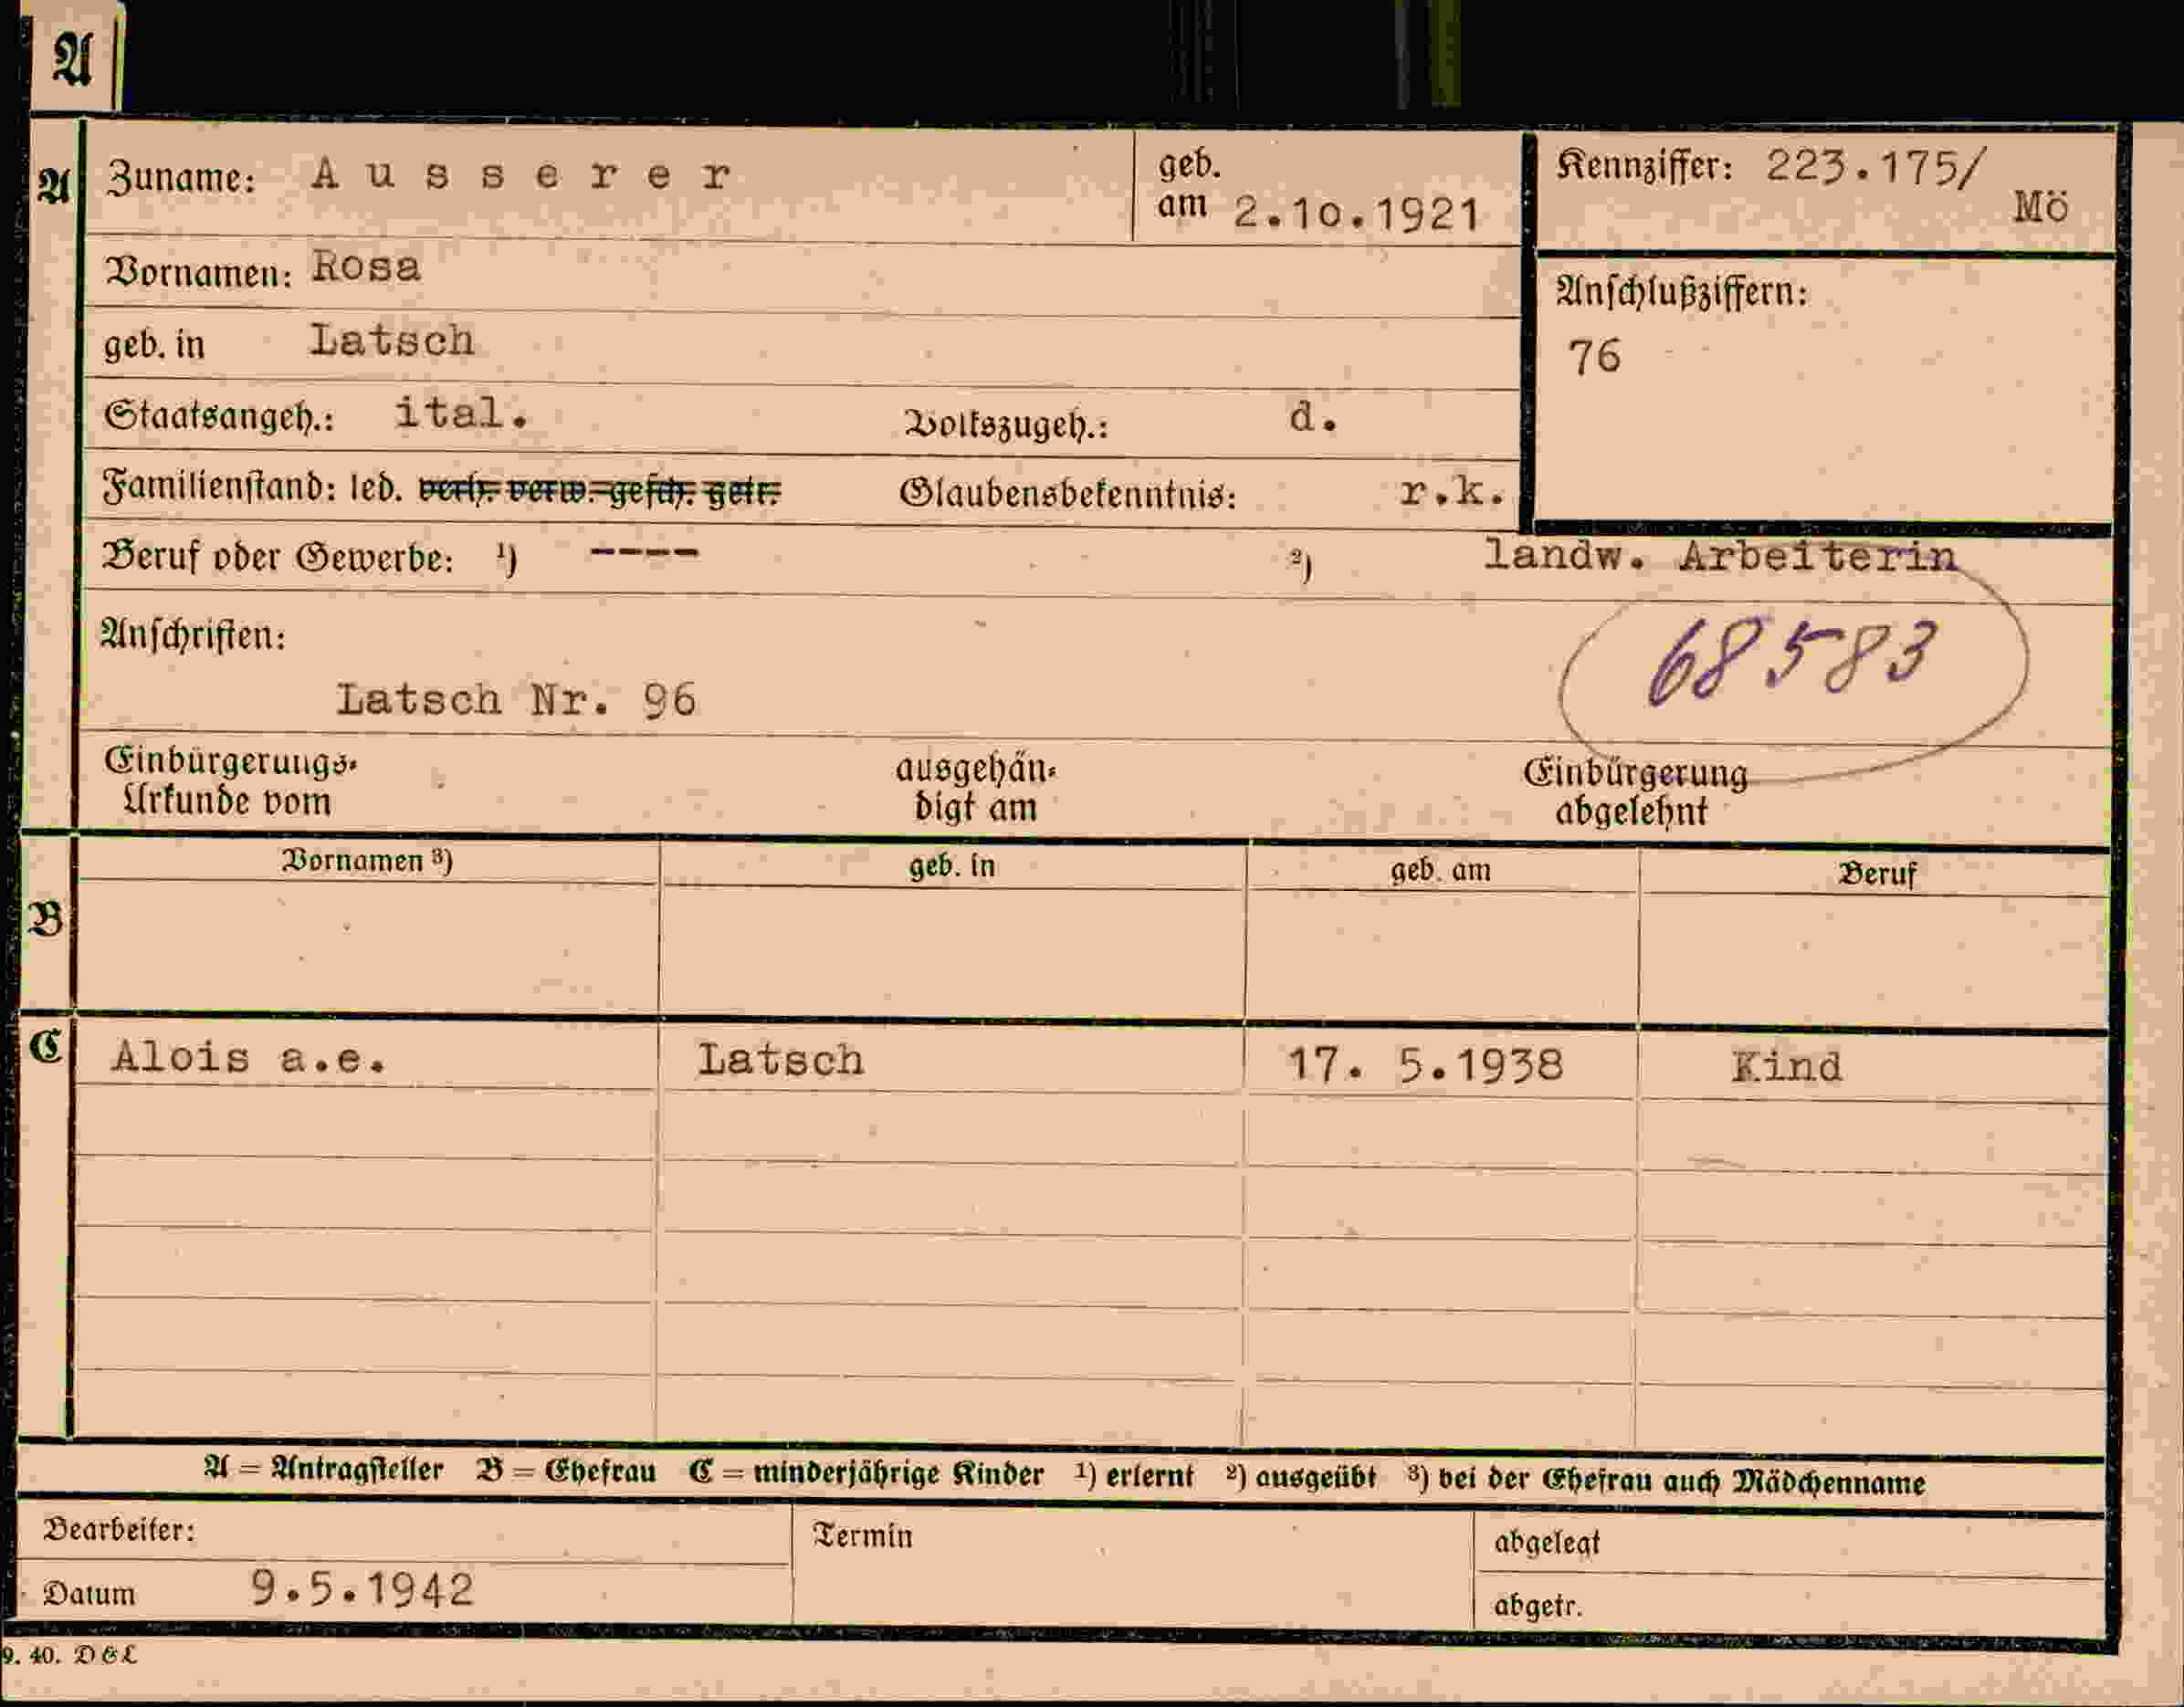 A
A
Zuname: Ausserer
geb.
am 2.10.1921
Kennziffer: 223.175/
Mö
Vornamen: Rosa
Anschlußziffern:
76
geb. in Latsch
Staatsangeh.: ital. Volkszugeh.: d.
Familienstand: led. verh. verw. gesch. getr. Glaubensbekenntnis: r.k.
Beruf oder Gewerbe: ¹) ---- ²) landw. Arbeiterin
Anschriften:
68583
Latsch Nr. 96
Einbürgerungs-
Urkunde vom
ausgehän-
digt am
Einbürgerung
abgelehnt
Vornamen ³) geb. in geb. am Beruf
B
C Alois a.e. Latsch 17. 5.1938 Kind
A = Antragsteller B = Ehefrau C = minderjährige Kinder ¹) erlernt ²) ausgeübt ³) bei der Ehefrau auch Mädchenname
Bearbeiter: Termin abgelegt
Datum 9.5.1942 abgetr.
9. 40. D&L